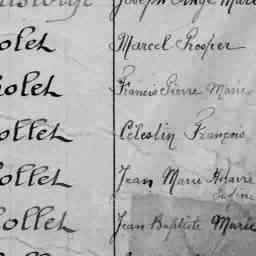 Joseph Ange Marie
olet Marcel Prosper
olet Francis Pierre Marie
ollet Célestin François
ollet Jean Marie Hilaire
ollet Jean Baptiste Marie